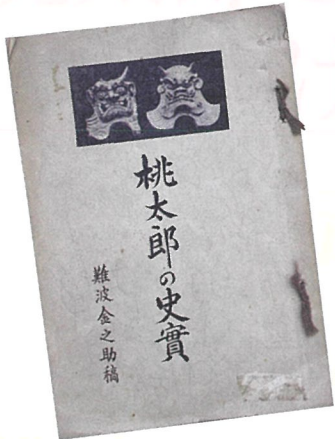 桃太郎の史實
難波金之助稿